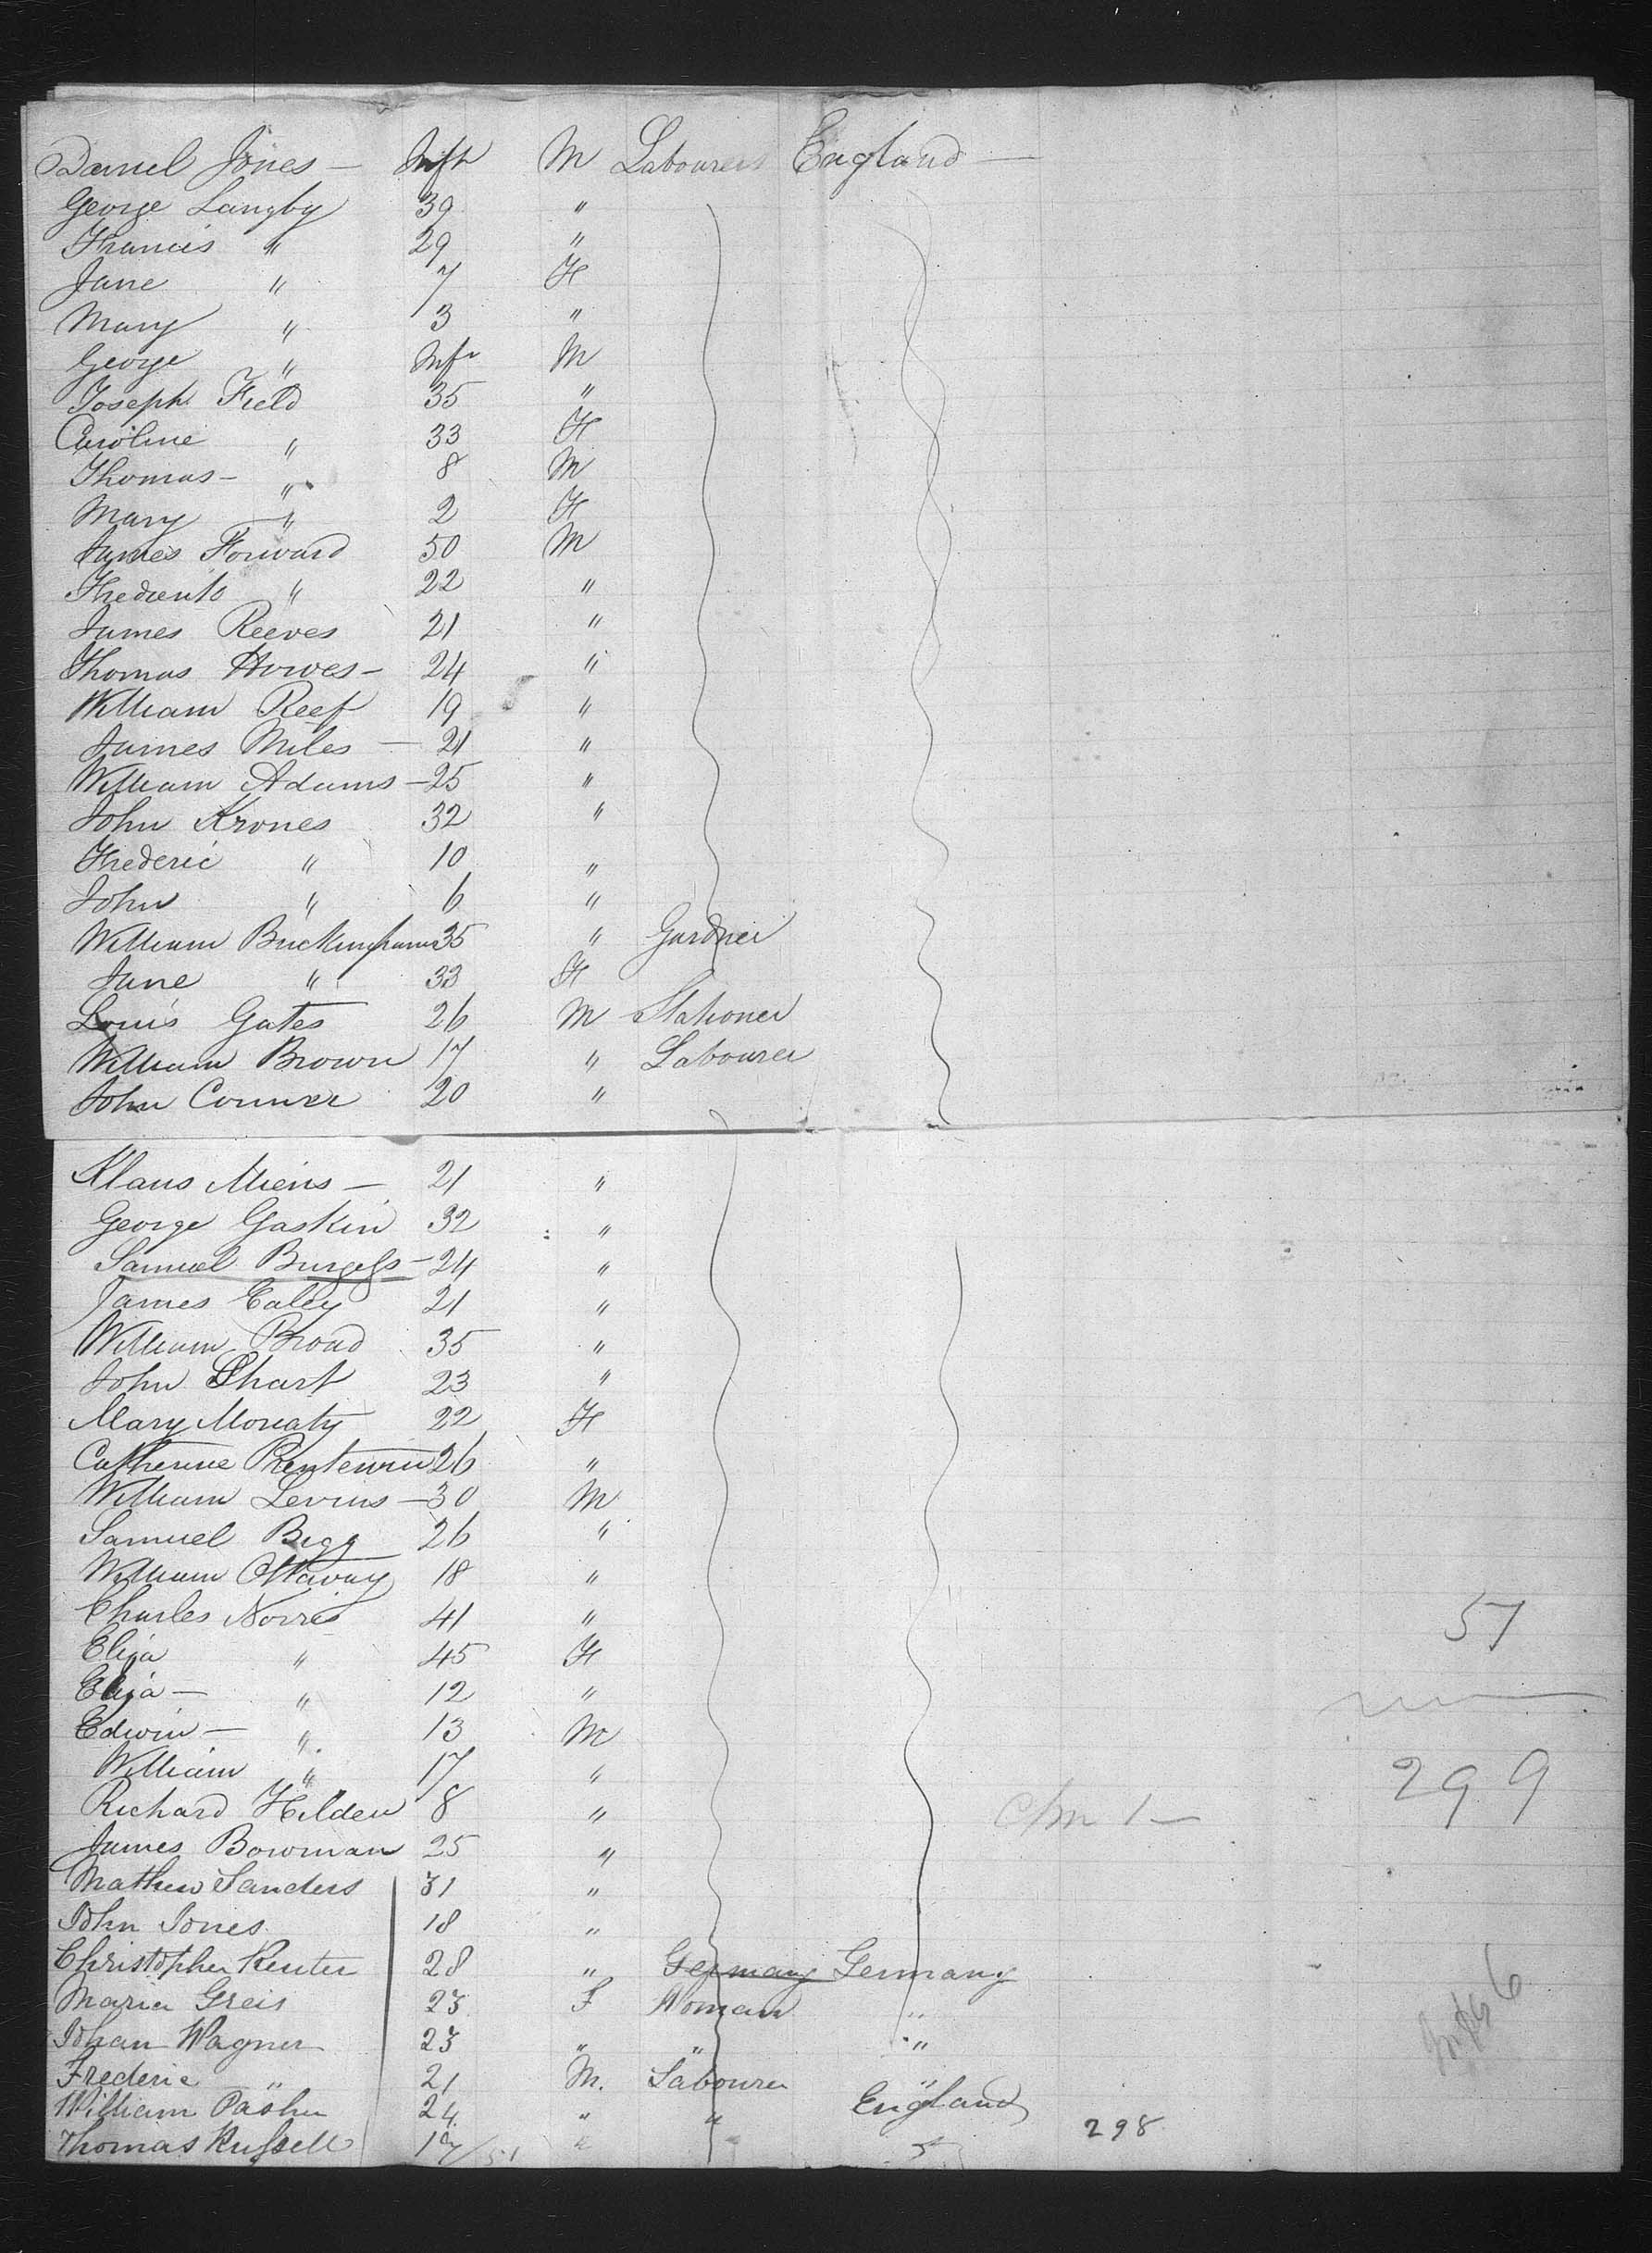 Daniel Jones — Inft M Labourers England —
George Langby 39 "
Francis " 29 "
Jane " 7 F
Mary " 3 "
George " Inft M
Joseph Field 35 "
Caroline " 33 F
Thomas — " 8 M
Mary " 2 F
James Forward 50 M
" 22 "
James Reeves 21 "
Thomas Howes — 24 "
William Reef 19 "
James Miles — 21 "
William Adams — 25 "
John Krones 32 "
Frederic " 10 "
John " 6 "
William Buckingham 35 " Gardner
Jane " 33 F
Louis Gates 26 M Stationer
William Brown 17 " Labourer
John Conner 20 "
Klaus Miens — 21 "
George Gaskin 32 "
Samuel Burgess — 24 "
James Ealey 21 "
William Broad 35 "
John Shart 23 "
Mary Moriaty 22 F
Catherine 26 "
William Levins — 30 M
Samuel Bigg 26 "
William Ottaway 18 "
Charles Norris 41 " 51
Eliza " 45 F
Eliza — " 12 "
Edwin — " 13 M
William " 17 " 299
Richard Hilden 8 "
James Bowman 25 "
Mathew Sanders 31 "
John Jones 18 "
Christopher Reuter 28 " Germany Germany
Maria Greis 23 F Woman "
Johan Wagner 23 " " "
Frederic " 21 M. Labourer "
William Pasher 24 " " England
Thomas Russell 19 " " 298